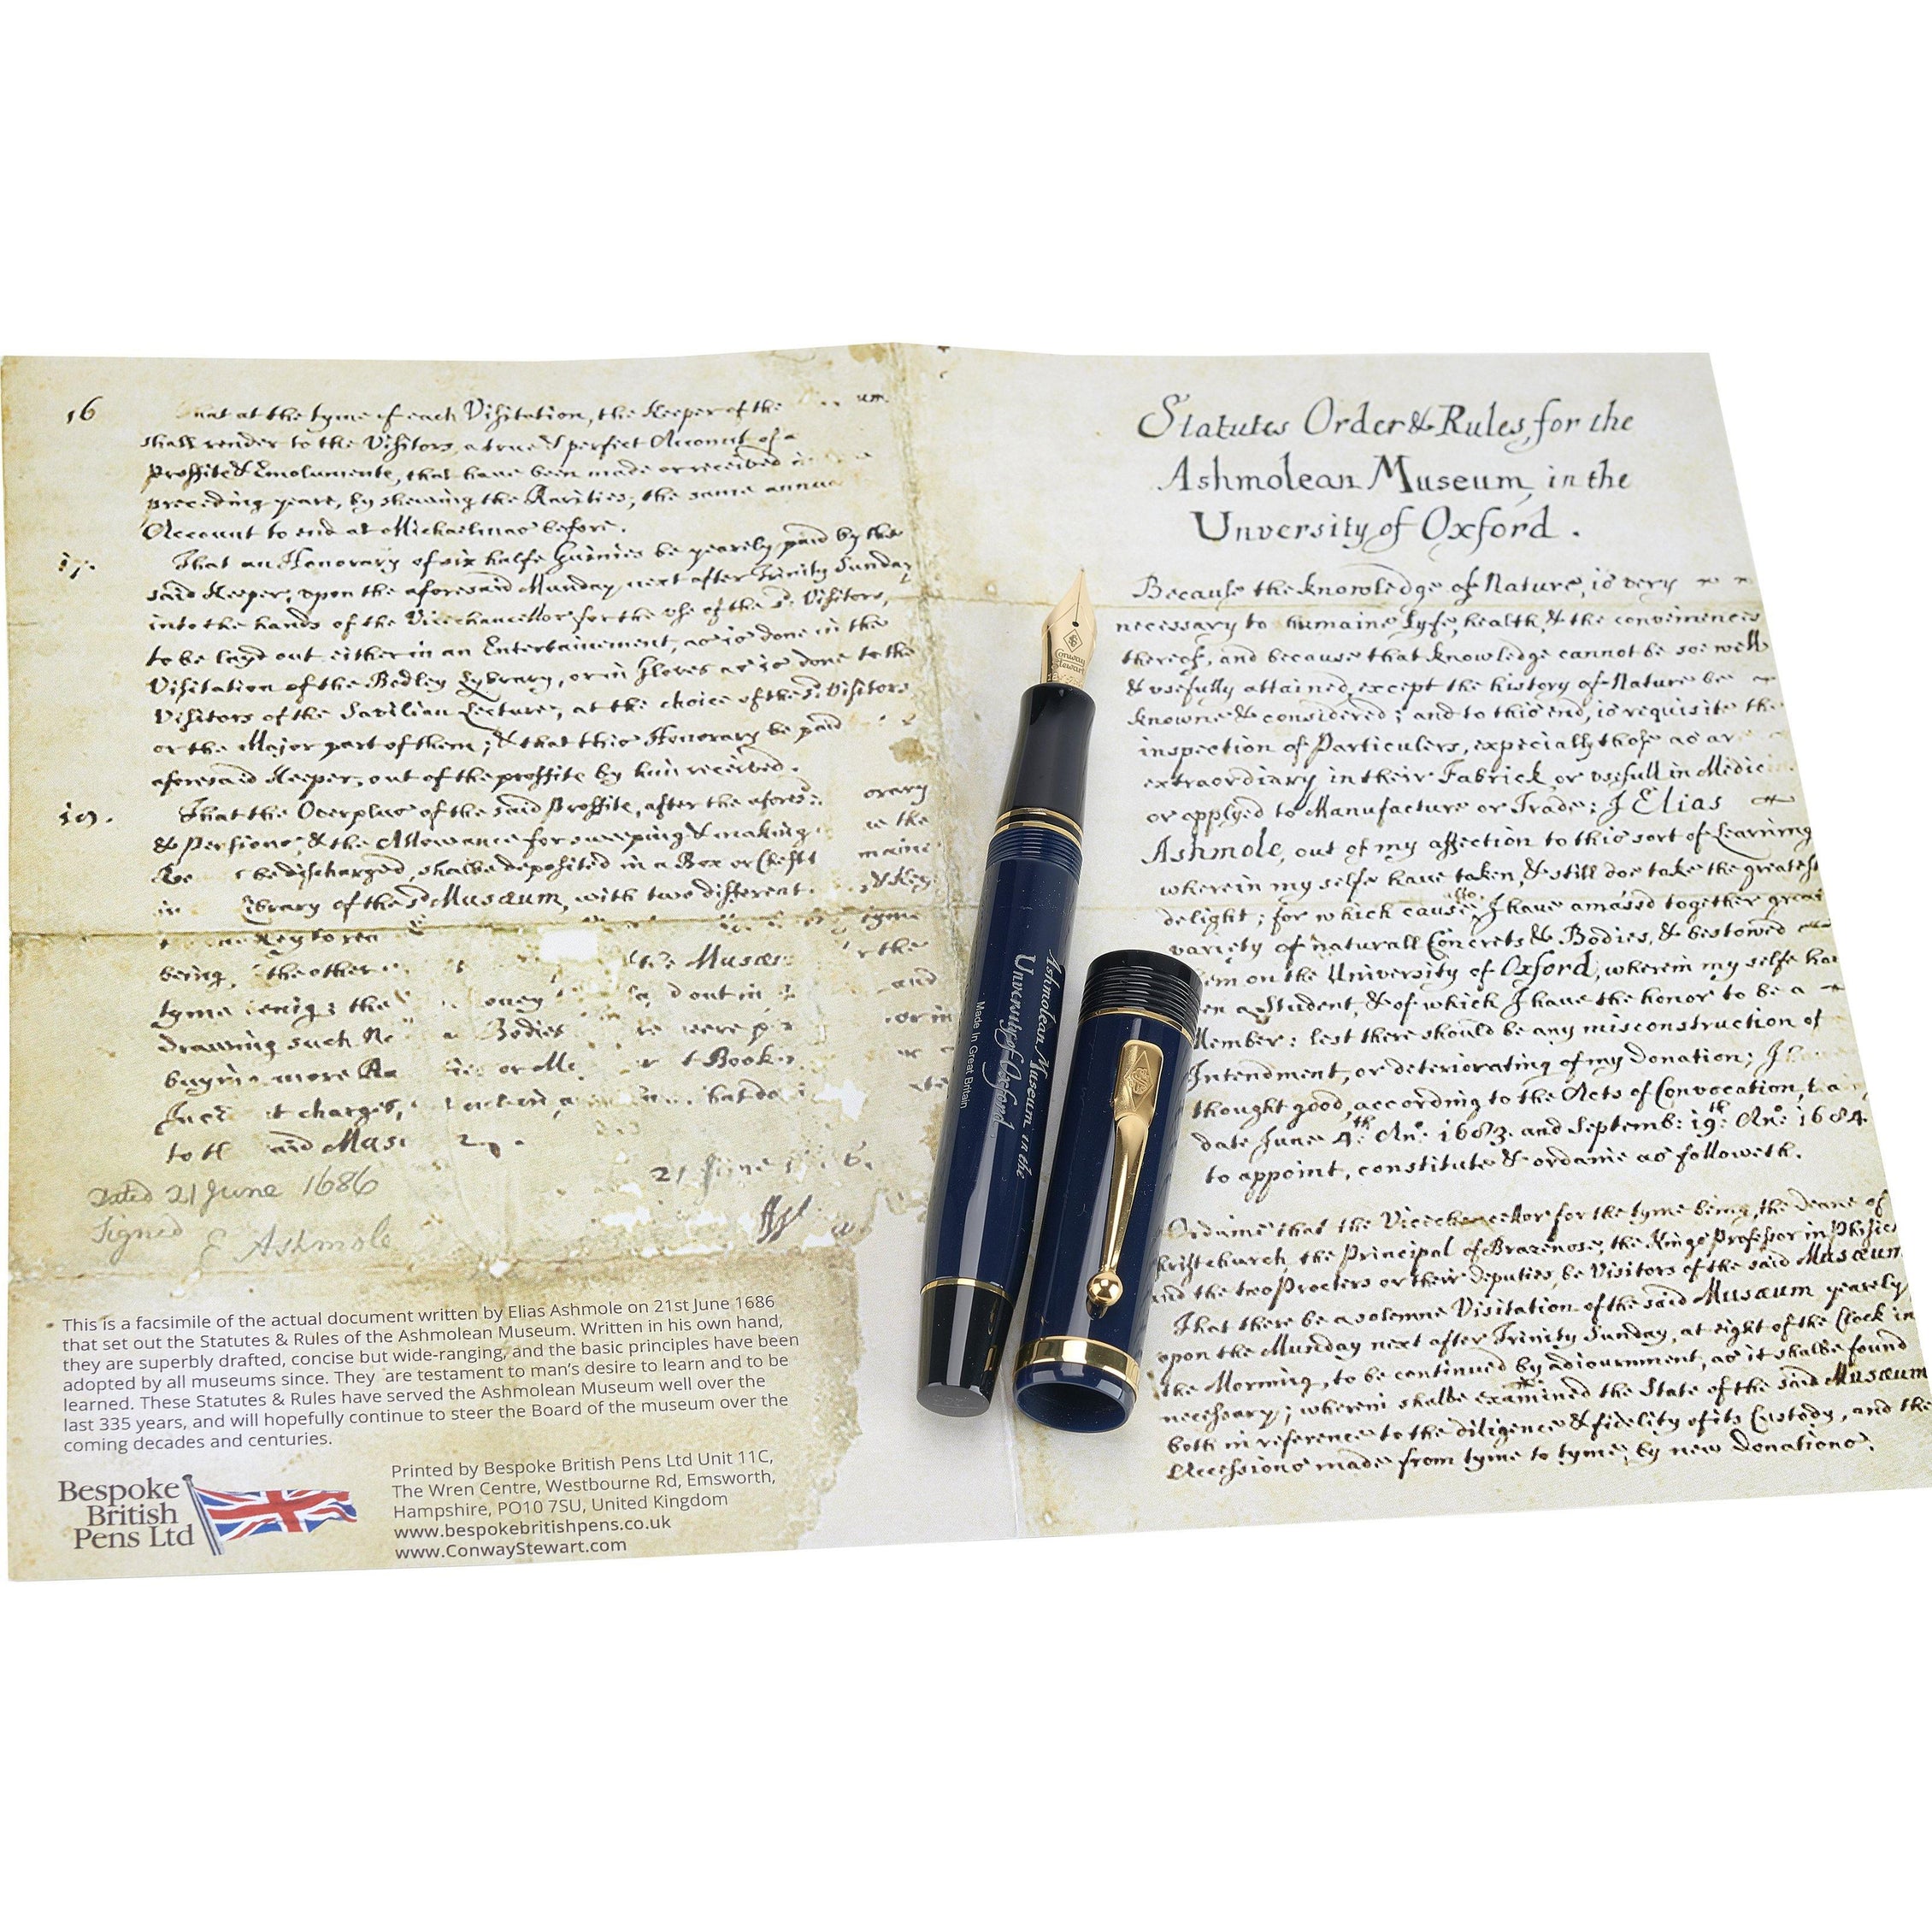 16
at at the tyme of each Visitation, the Keeper of the
shall render to the Visitors, a true & perfect Account of a
proffitts & Emoluments, that have been made or received
preceding yeare, by shewing the Rarities; the same annua
Account to end at Michaelmas before.
17.
That an Honorary of six halfe Guinnies be yearely paid by the
said Keeper, upon the aforesaid Munday next after Trinity Sunday
into the hands of the Vicechancellor for the use of the sd. Visitors,
to be layd out either in an Entertainement, as is done in the
Visitation of the Bodley Lybrary, or in Gloves as is done to the
Visitors of the Savilian Lectures, at the choice of the sd. Visitors
or the Major part of them; & that this Honorary be paid
aforesaid Keeper, out of the proffits by him received.
That the Overplus of the said Proffits, after the afores
orary
& Pensions, & the Allowance for sweeping & making
the
be discharged, shalbe deposited in a Box or Chest
maine
Library of the sd Musæum, with two different
Key to
tyme
being, the other
Musæ
the
tyme being; the
oney
d out in
and
drawing such
Bodies
were
or in
buying more Ra
or Me
Books
charges,
to th aid Mus
21 June
Dated 21 June 1686
Signed E Ashmole
This is a facsimile of the actual document written by Elias Ashmole on 21st June 1686
that set out the Statutes & Rules of the Ashmolean Museum. Written in his own hand,
they are superbly drafted, concise but wide-ranging, and the basic principles have been
adopted by all museums since. They are testament to man's desire to learn and to be
learned. These Statutes & Rules have served the Ashmolean Museum well over the
last 335 years, and will hopefully continue to steer the Board of the museum over the
coming decades and centuries.
Bespoke
British
Pens Ltd
Printed by Bespoke British Pens Ltd Unit 11C,
The Wren Centre, Westbourne Rd, Emsworth,
Hampshire, PO10 7SU, United Kingdom
www.bespokebritishpens.co.uk
www.ConwayStewart.com
Conway
Stewart
Ashmolean Museum in the
Unversity of Oxford
Made In Great Britain
Statutes Order & Rules, for the
Ashmolean Museum, in the
Unversity of Oxford.
Because the knowledge of Nature, is very
necessary to humaine lyfe, health, & the conveniences
thereof, and because that knowledge cannot be soe well
& usefully attained, except the history of Nature be
knowne & considered; and to this end, is requisite the
inspection of Particulers, expecially those as ar
extraordinary in their Fabrick, or usefull in Medicin
or applyed to Manufacture or Trade: I Elias
Ashmole, out of my affection to this sort of Learning
wherein my selfe have taken, & still doe take the greatest
delight; for which cause also, I have amassd together great
variety of naturall Concrets & Bodies, & bestowed
em on the University of Oxford, wherein my selfe ha
en a Student, & of which I have the honor to be a
Member: lest there should be any misconstruction of
Intendment, or deteriorating of my donation; I
thought good, according to the Acts of Convocation,
date June 4th. Ano. 1683. and Septemb: 19th. Ano: 1684.
to appoint, constitute & ordaine as followeth.
Ordaine that the Vicechancellor for the tyme being, the deane of
Christchurch, the Principal of Brazenose, the Kings Professor in Physic
and the two Procters or their deputies, be Visitors of the said Musæum
That there be a solemne Visitation of the said Musæum yearely
upon the Munday next after Trinity Sunday, at eight of the Clock in
the Morning, to be continued by adiournment, as it shalbe found
necessary; wherein shalbe examined the State of the said Musæum
both in reference to the diligence & fidelity of its Custody, and the
Accessions made from tyme to tyme, by new donations.